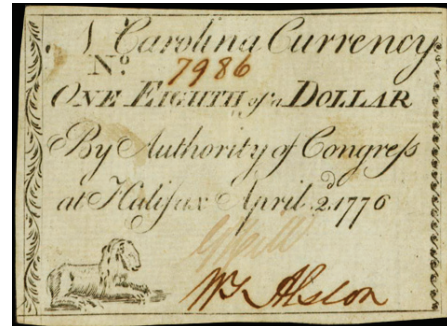 N Carolina Currency
No. 7986
ONE EIGHTH of a DOLLAR
By Authority of Congreſs
at Halifax April 2d. 1776
G Hill
Wm Alston